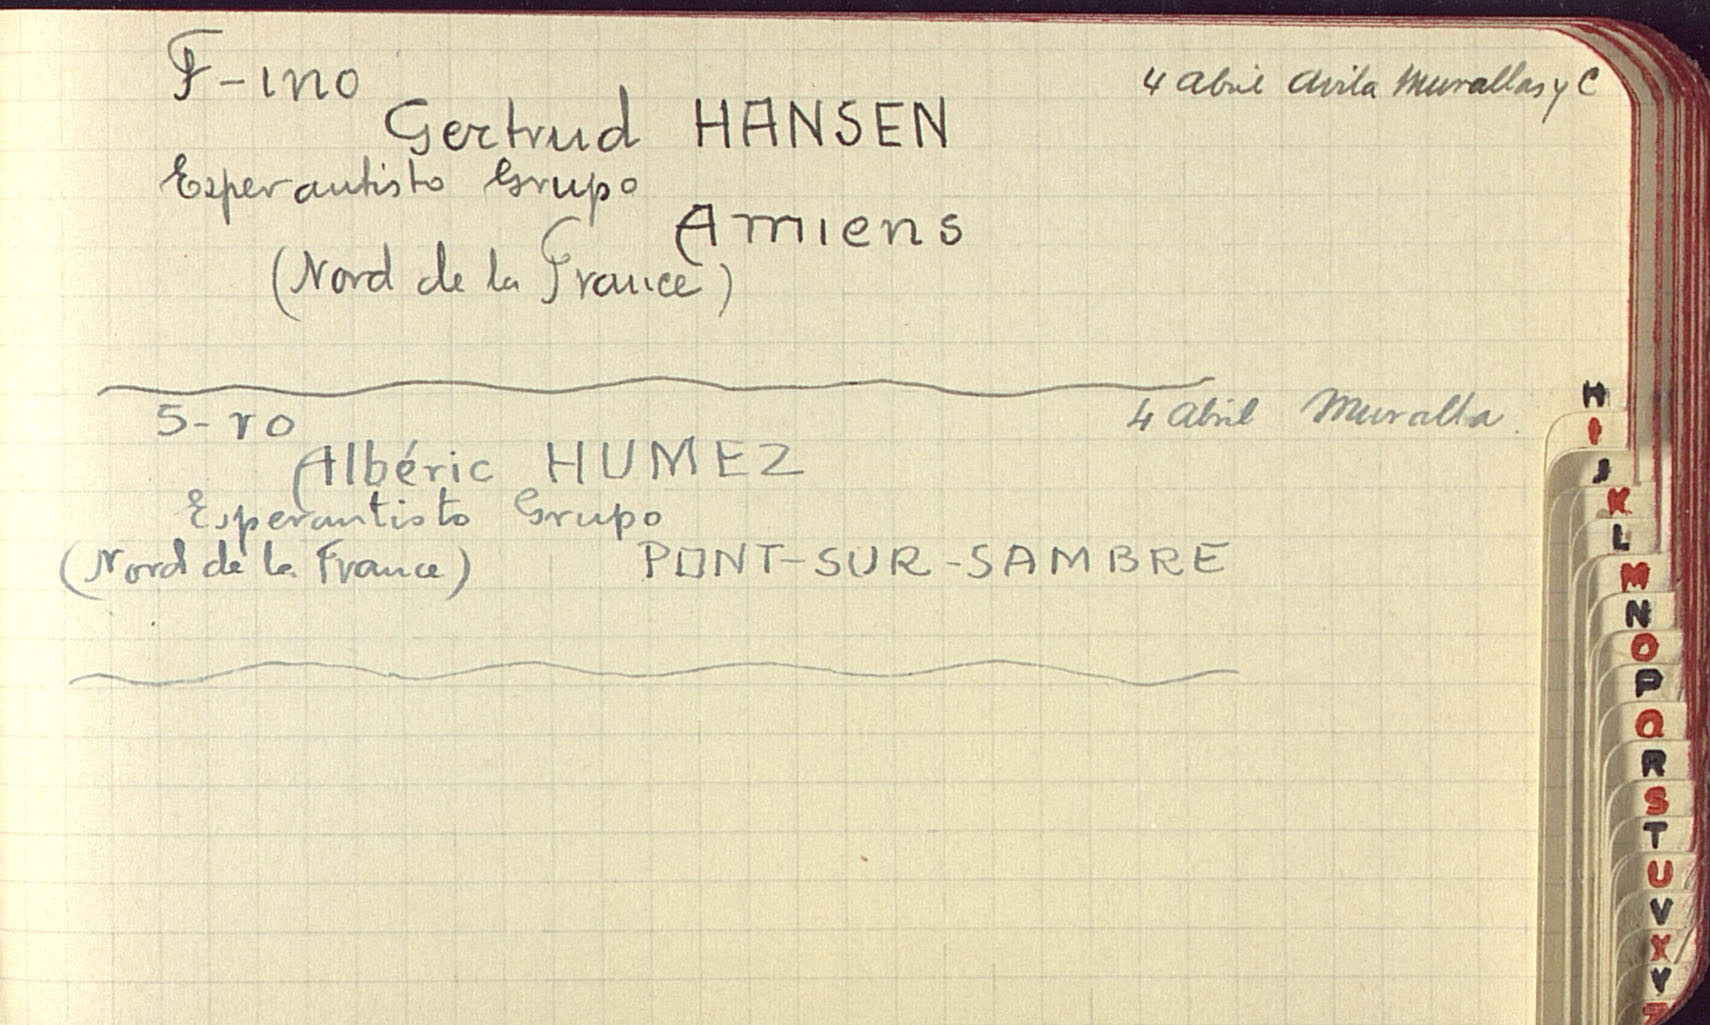 F-ino
4 Abril Avila Murallas y C
Gertrud HANSEN
Esperantisto Grupo
Amiens
(Nord de la France)
S-ro
4 Abril Muralla
Albéric HUMEZ
Esperantisto Grupo
(Nord de la France) PONT-SUR-SAMBRE
H
I
J
K
L
M
N
O
P
Q
R
S
T
U
V
X
Y
Z